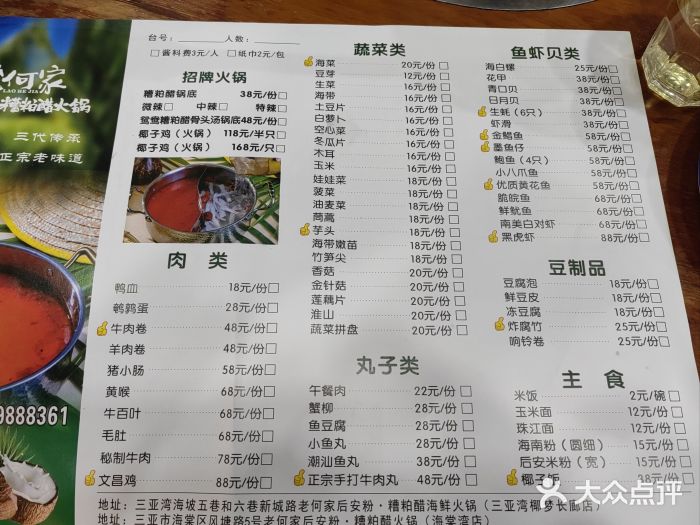 何家
LAO HE JIA
糟粕醋火锅
三代传承
正宗老味道
9888361
台号: 人数:
□酱料费3元/人 □纸巾2元/包
招牌火锅
糟粕醋锅底 38元/份□
微辣□ 中辣□ 特辣□
鸳鸯糟粕醋骨头汤锅底48元/份□
椰子鸡（火锅） 118元/半只□
椰子鸡（火锅） 168元/只□
肉 类
鸭血 18元/份□
鹌鹑蛋 28元/份□
牛肉卷 48元/份□
羊肉卷 48元/份□
猪小肠 58元/份□
黄喉 68元/份□
牛百叶 68元/份□
毛肚 68元/份□
秘制牛肉 78元/份□
文昌鸡 88元/份□
蔬菜类
海菜 20元/份□
豆芽 12元/份□
生菜 16元/份□
海带 12元/份□
土豆片 16元/份□
白萝卜 16元/份□
空心菜 16元/份□
冬瓜片 16元/份□
木耳 16元/份□
玉米 16元/份□
娃娃菜 18元/份□
菠菜 18元/份□
油麦菜 18元/份□
茼蒿 18元/份□
芋头 18元/份□
海带嫩苗 18元/份□
竹笋尖 18元/份□
香菇 18元/份□
金针菇 18元/份□
莲藕片 18元/份□
淮山 18元/份□
蔬菜拼盘 33元/份□
丸子类
午餐肉 22元/份□
蟹柳 28元/份□
鱼豆腐 28元/份□
小鱼丸 28元/份□
潮汕鱼丸 38元/份□
正宗手打牛肉丸 48元/份□
鱼虾贝类
海白螺 25元/份□
花甲 38元/份□
青口贝 38元/份□
日月贝 38元/份□
生蚝（6只） 38元/份□
虾滑 38元/份□
金鲳鱼 58元/份□
墨鱼仔 58元/份□
鲍鱼（4只） 58元/份□
小八爪鱼 58元/份□
优质黄花鱼 58元/份□
脆皖鱼 68元/份□
鲜鱿鱼 68元/份□
南美白对虾 68元/份□
黑虎虾 88元/份□
豆制品
豆腐泡 18元/份□
鲜豆皮 18元/份□
冻豆腐 18元/份□
炸腐竹 25元/份□
响铃卷 25元/份□
主 食
米饭 2元/碗□
玉米面 12元/份□
珠江面 12元/份□
海南粉（圆细） 15元/份□
后安米粉（宽） 15元/份□
椰子饭
地址：三亚湾海坡五巷和六巷新城路老何家后安粉·糟粕醋海鲜火锅（三亚湾椰梦长廊店）
地址：三亚市海棠区风塘路5号老何家后安粉·糟粕醋火锅（海棠湾店）
大众点评